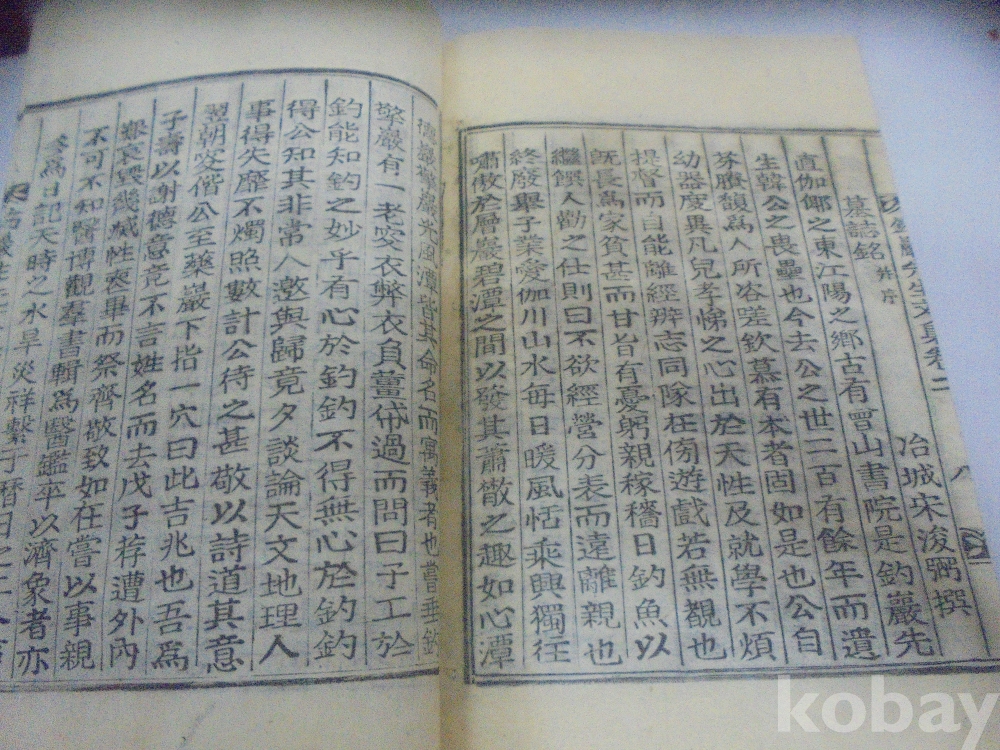 釣巖先生文集卷二 八
墓誌銘 并序 冶城宋浚弼撰
直伽倻之東江陽之鄉古有曾山書院是釣巖先
生韓公之畏壘也今去公之世二百有餘年而遺
芬賸馥爲人所咨嗟欽慕有本者固如是也公自
幼器度異凡兒孝悌之心出於天性及就學不煩
提督而自能離經辨志同隊在傍遊戲若無覩也
旣長爲家貧甚而甘旨有憂躬親稼穡日釣魚以
繼饌人勸之仕則曰不欲經營分表而遠離親也
終廢擧子業愛伽川山水每日暖風恬乘興獨往
嘯傲於層巖碧潭之間以發其蕭散之趣如心潭
德巖擎巖光風潭皆其命名而寓義者也嘗垂釣
擎巖有一老叟衣弊衣負薑帒過而問曰子工於
釣能知釣之妙乎有心於釣釣不得無心於釣釣
得公知其非常人邀與歸竟夕談論天文地理人
事得失靡不燭照數計公待之甚敬以詩道其意
翌朝叟偕公至藥巖下指一穴曰此吉兆也吾爲
子壽以謝德意竟不言姓名而去戊子荐遭外內
艱哀毀幾滅性喪畢而祭齊敬致如在嘗以事親
不可不知醫博觀羣書輯爲醫鑑卒以濟象者亦
爲日記天時之水旱災祥繫于曆日之